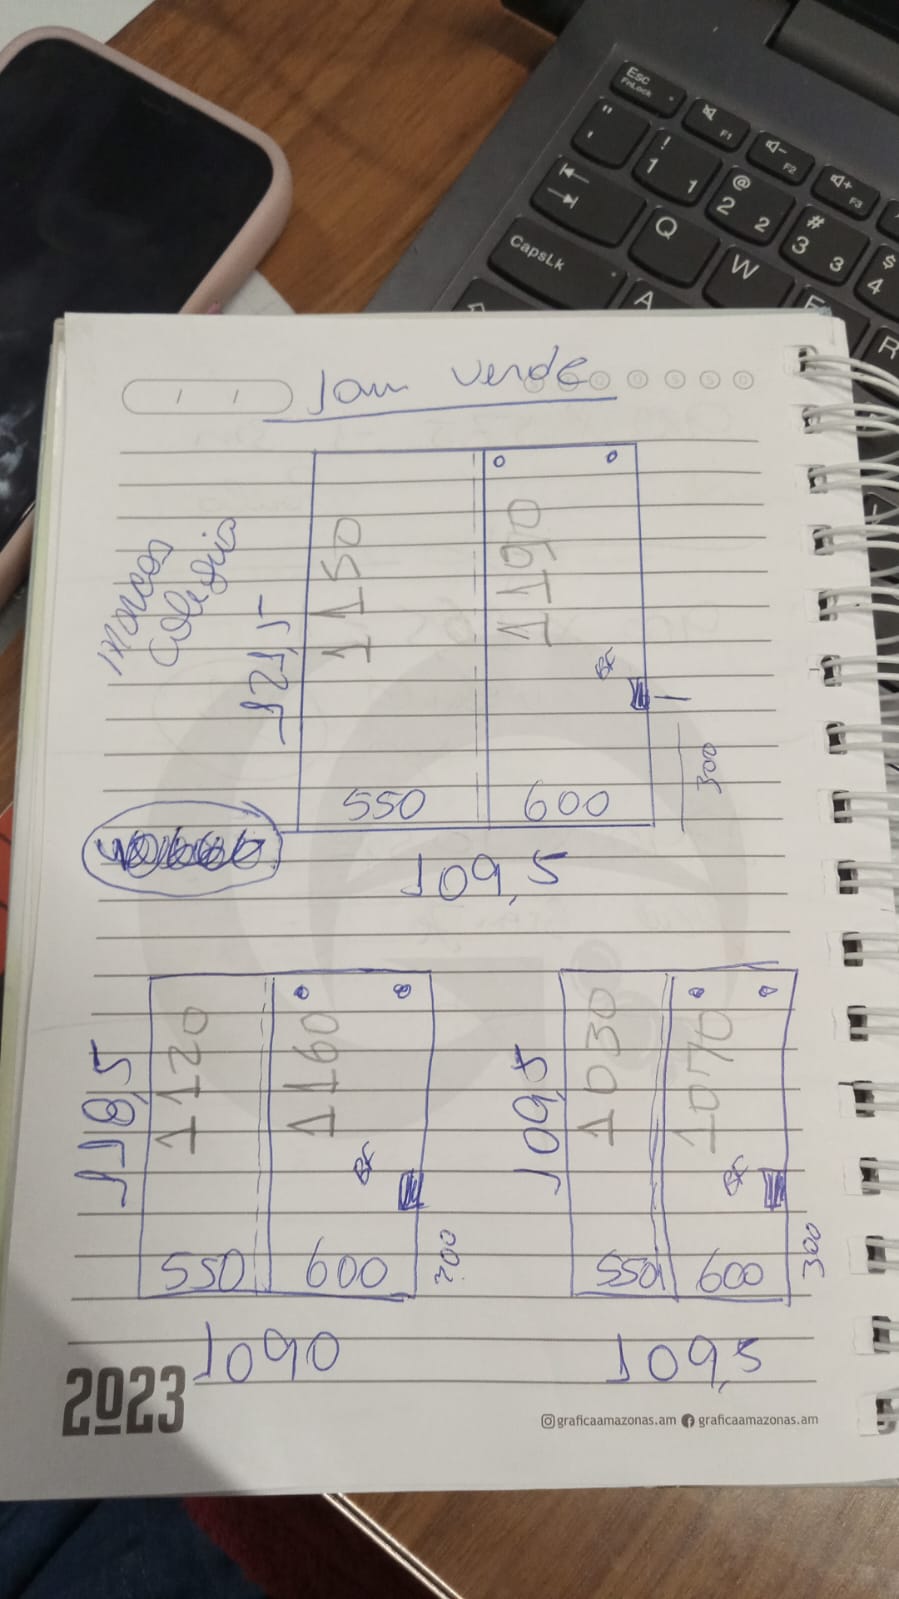 Jam verde
marcos
colegio
121,5
1150
1190
BF
300
550
600
109,5
118,5
1120
1160
BF
550
600
200
1090
109,5
1030
1070
BF
550
600
300
109,5
2023
graficaamazonas.am graficaamazonas.am
Esc
FnLock
F1
F2
F3
! 1 1
@ 2 2
# 3 3
$ 4
Q
W
R
CapsLk
A